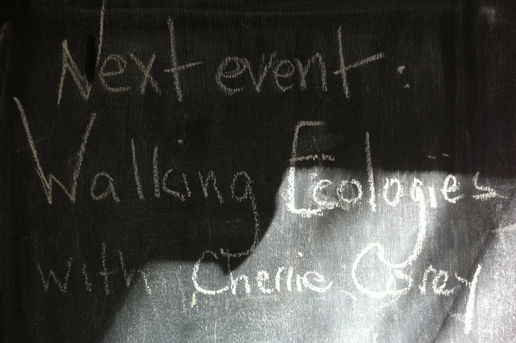 Next event:
Walking Ecologies
with Cherrie Corey